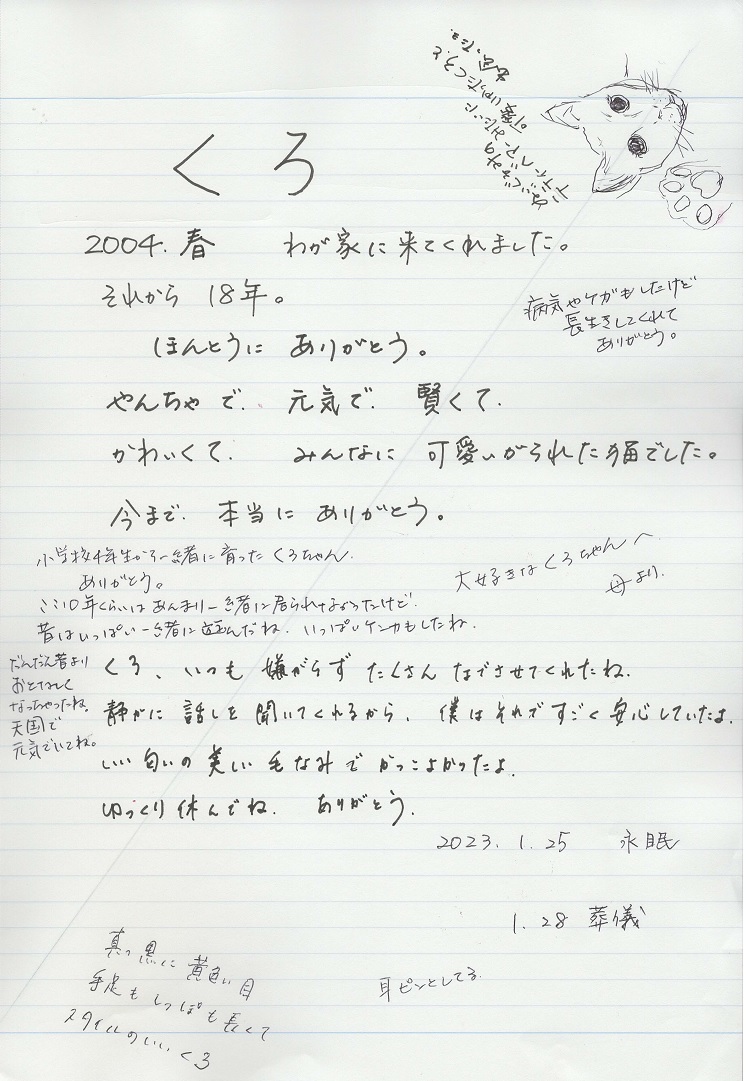 くろ
2004. 春　わが家に来てくれました。
それから 18年。
ほんとうに ありがとう。
病気やケガもしたけど
長生きしてくれて
ありがとう。
やんちゃで. 元気で. 賢くて.
かわいくて. みんなに 可愛いがられた猫でした。
今まで. 本当に ありがとう。
大好きなくろちゃんへ
母より.
小学校4年生から一緒に育った くろちゃん.
ありがとう。
ここ10年くらいは あんまり一緒に居られなかったけど.
昔はいっぱい一緒に遊んだね. いっぱいケンカもしたね.
だんだん昔より
おとなしく
なっちゃったね.
天国で
元気でいてね。
くろ、いつも 嫌がらず たくさん なでさせてくれたね.
静かに 話しを 聞いてくれるから、僕はそれですごく 安心していたよ.
いい匂いの 美しい 毛なみで かっこよかったよ.
ゆっくり休んでね. ありがとう.
2023. 1. 25　永眠
1. 28 葬儀
真っ黒に 黄色い目
手足も しっぽも 長くて
スタイルのいい くろ
耳ピンとしてる.